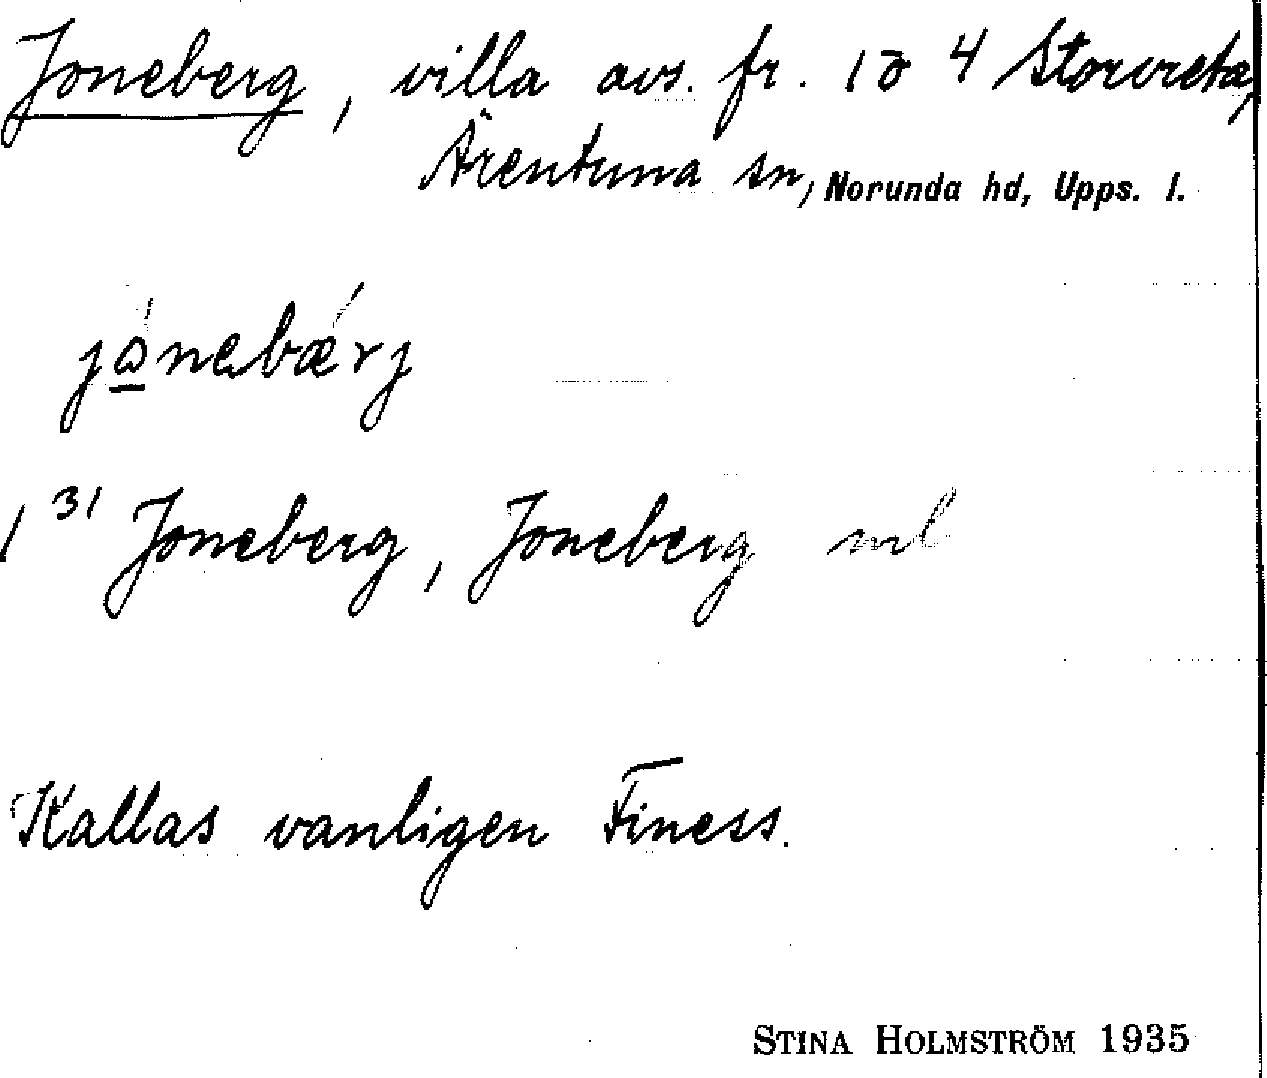 Joneberg, villa avs. fr. 1ō 4 Storvreta,
Ärentuna sn, Norunda hd, Upps. l.
jɷ́nebǽrj
1 31 Joneberg, Joneberg ml
Kallas vanligen Finess.
STINA HOLMSTRÖM 1935